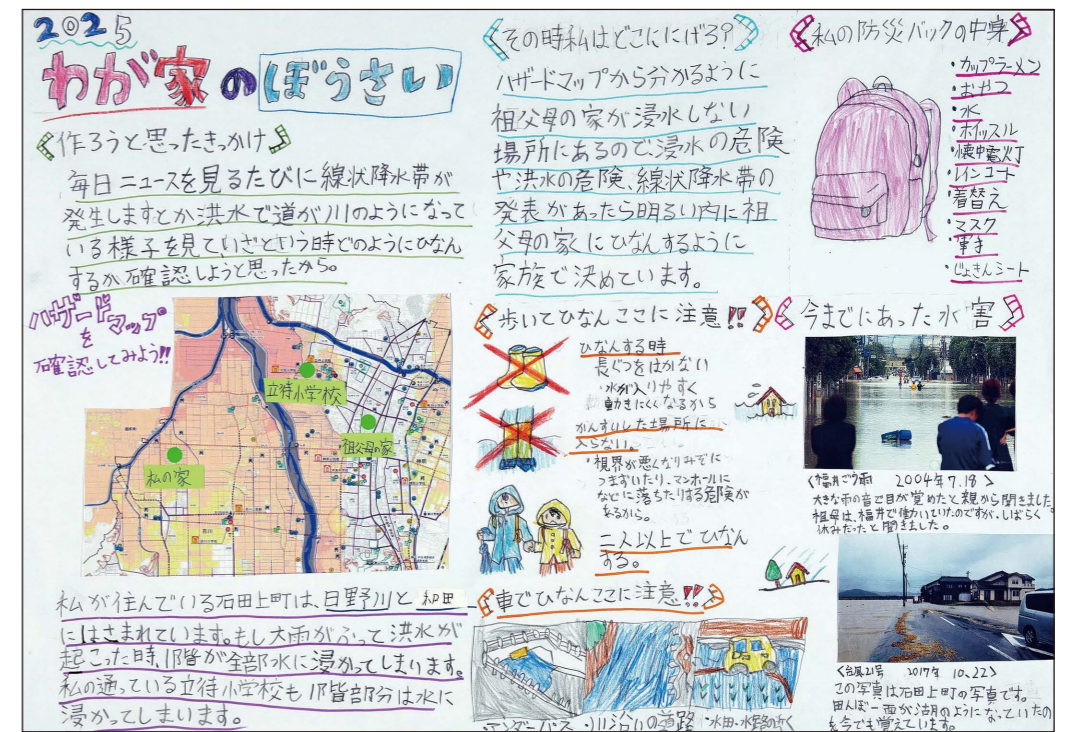 2025
わが家のぼうさい
作ろうと思ったきっかけ
毎日ニュースを見るたびに線状降水帯が
発生しますとか洪水で道が川のようになって
いる様子を見て、いざという時どのようにひなん
するか確認しようと思ったから。
ハザードマップ
を
確認してみよう!!
立待小学校
祖父母の家
私の家
私が住んでいる石田上町は、日野川と和田
にはさまれています。もし大雨がふって洪水が
起こった時、1階が全部水に浸かってしまいます。
私の通っている立待小学校も1階部分は水に
浸かってしまいます。
その時私はどこににげろ?
ハザードマップから分かるように
祖父母の家が浸水しない
場所にあるので浸水の危険
や洪水の危険、線状降水帯の
発表があったら明るい内に祖
父母の家にひなんするように
家族で決めています。
歩いてひなんここに注意!!
ひなんする時
長ぐつをはかない
・水が入りやすく
動きにくくなるから
かんすいした場所に
入らない。
・視界が悪くなりみぞに
つまずいたり、マンホールに
などに落ちたりする危険が
あるから。
二人以上でひなん
する。
車でひなんここに注意!!
・アンダーパス
・川沿いの道路
・水田・水路の近く
私の防災バックの中身
・カップラーメン
・おやつ
・水
・ホイッスル
・懐中電灯
・レインコート
・着替え
・マスク
・軍手
・じょきんシート
今までにあった水害
<福井ごう雨 2004年7.18>
大きな雨の音で目が覚めたと親から聞きました
祖母は、福井で働いていたのですが、しばらく
休みだったと聞きました。
<台風21号 2017年 10.22>
この写真は石田上町の写真です。
田んぼ一面が湖のようになっていたの
を今でも覚えています。